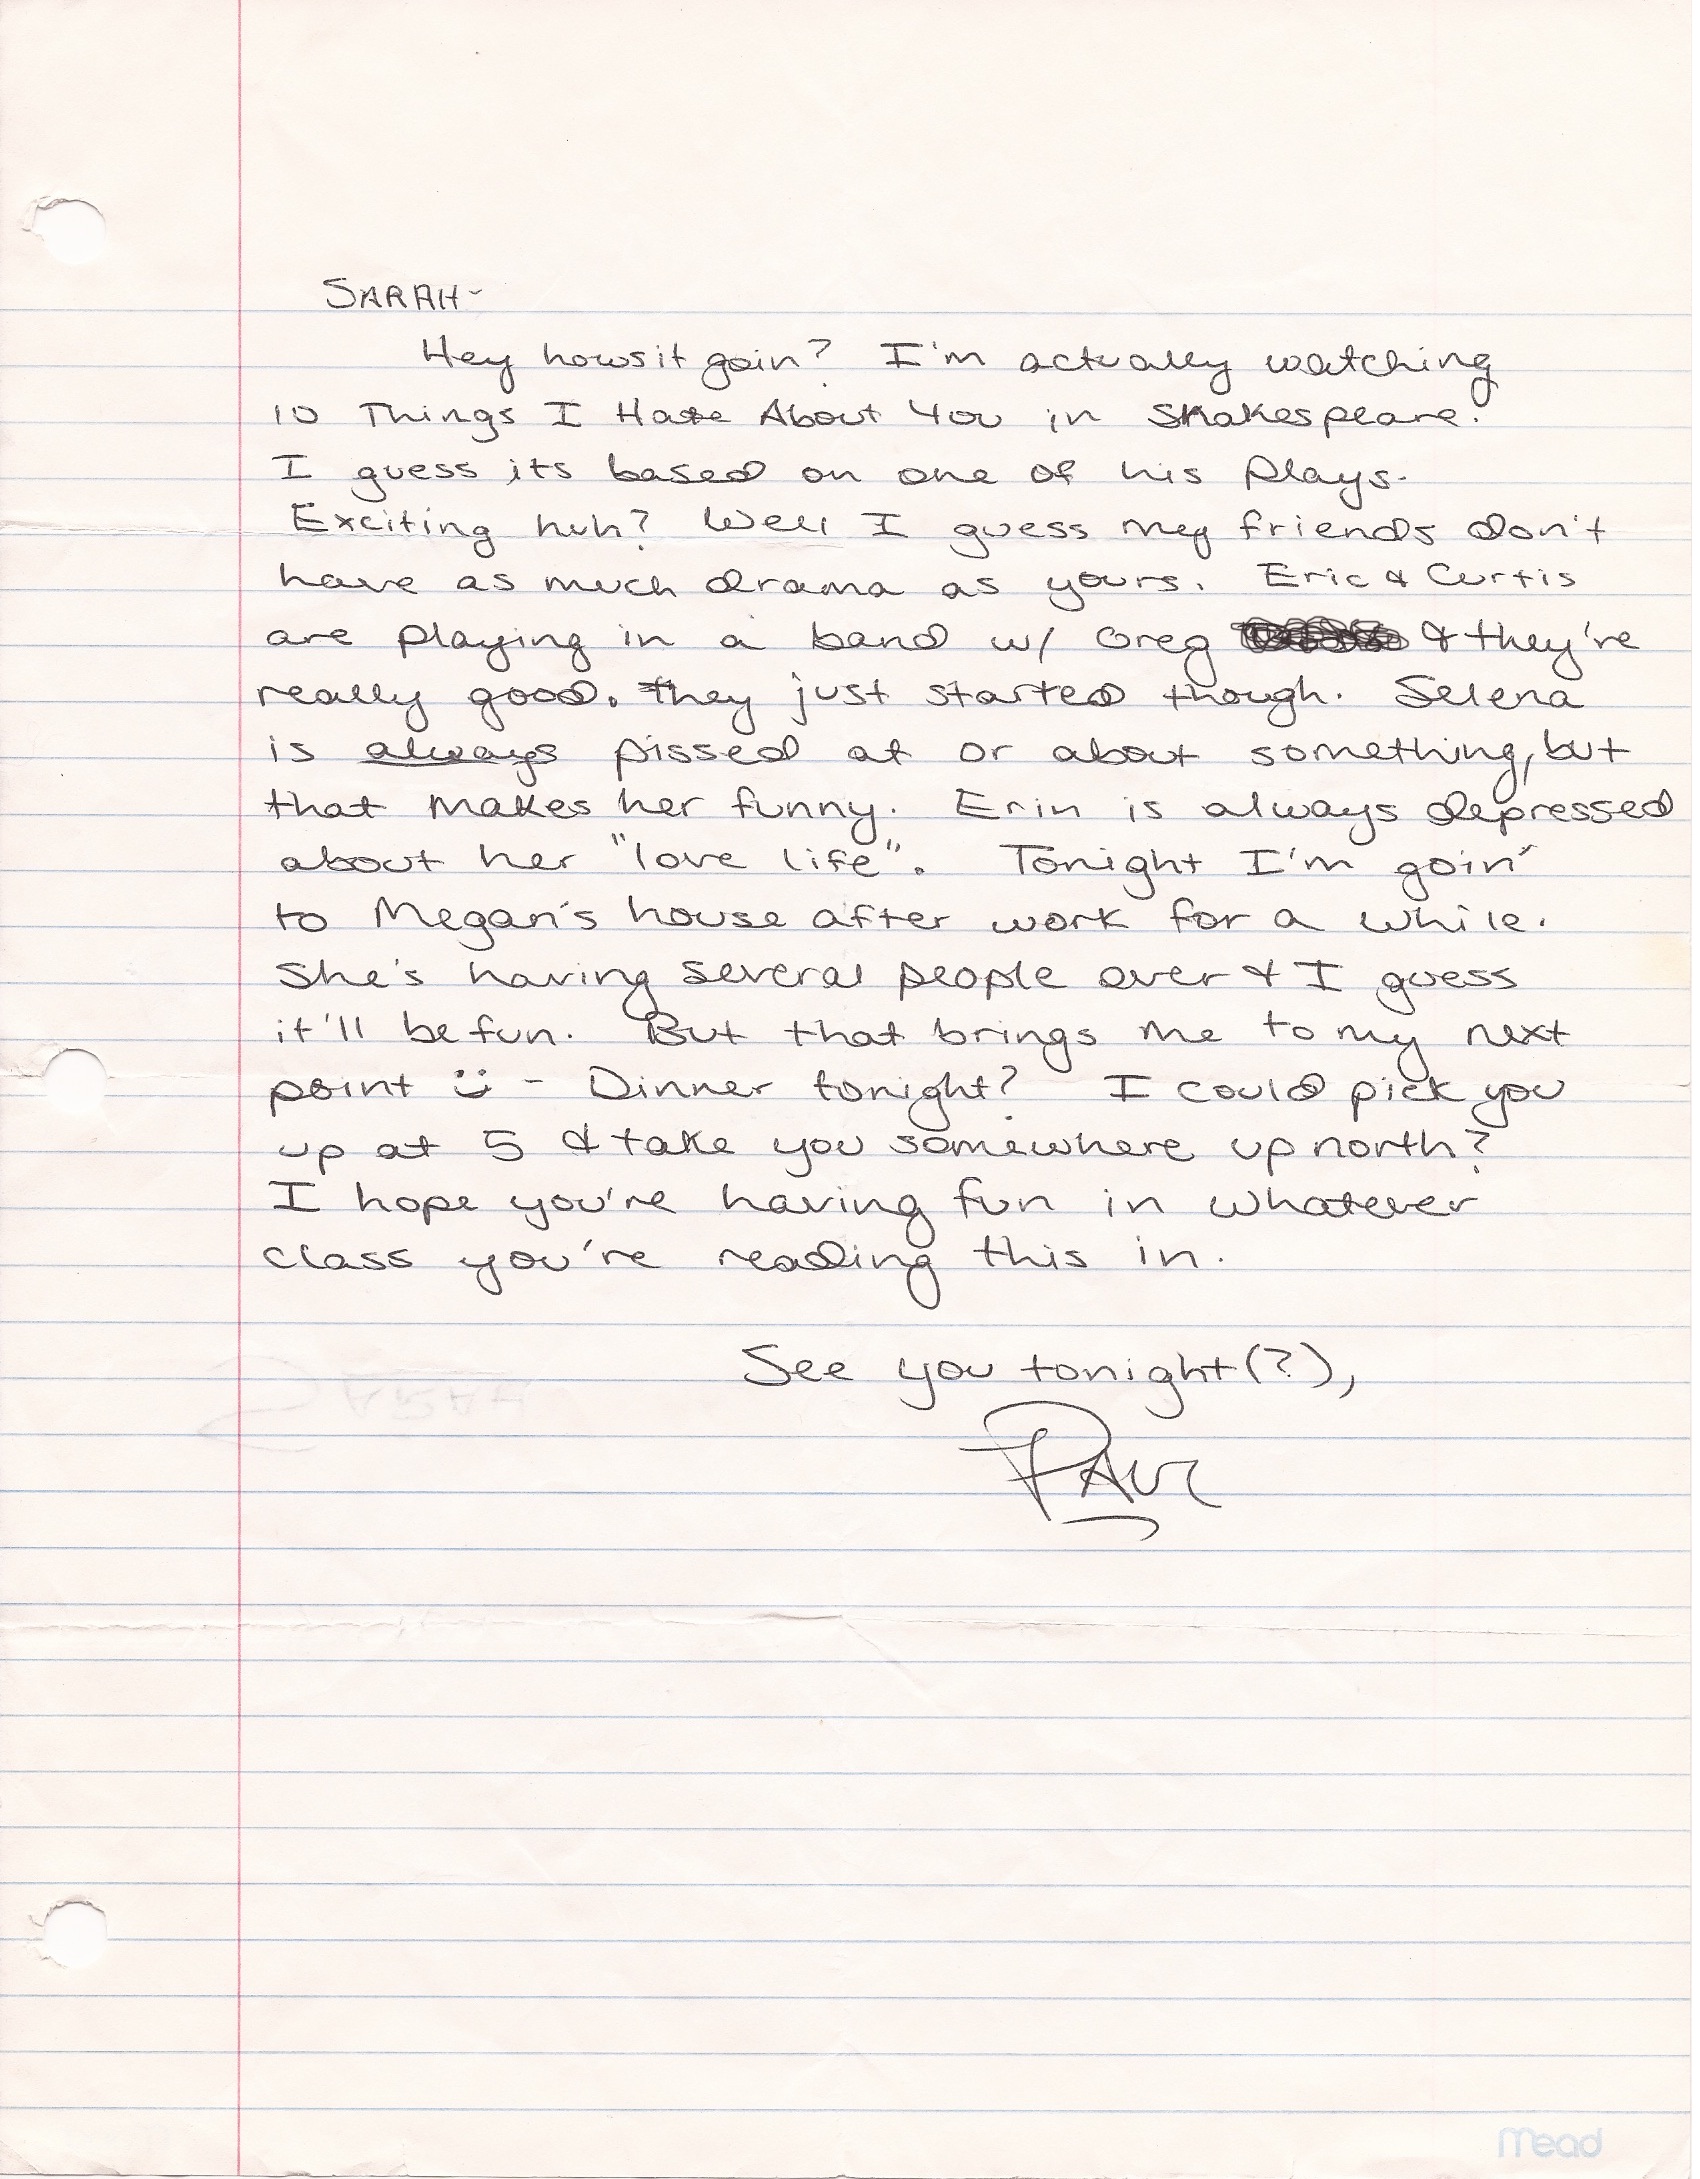 SARAH-
Hey hows it goin? I'm actually watching
10 Things I Hate About You in Shakespeare.
I guess its based on one of his plays.
Exciting huh? Well I guess my friends don't
have as much drama as yours. Eric & Curtis
are playing in a band w/ Greg & they're
really good. They just started though. Selena
is always pissed at or about something, but
that makes her funny. Erin is always depressed
about her "love life". Tonight I'm goin'
to Megan's house after work for a while.
She's having several people over & I guess
it'll be fun. But that brings me to my next
point :) - Dinner tonight? I could pick you
up at 5 & take you somewhere up north?
I hope you're having fun in whatever
class you're reading this in.
See you tonight(?),
PAUL
Mead